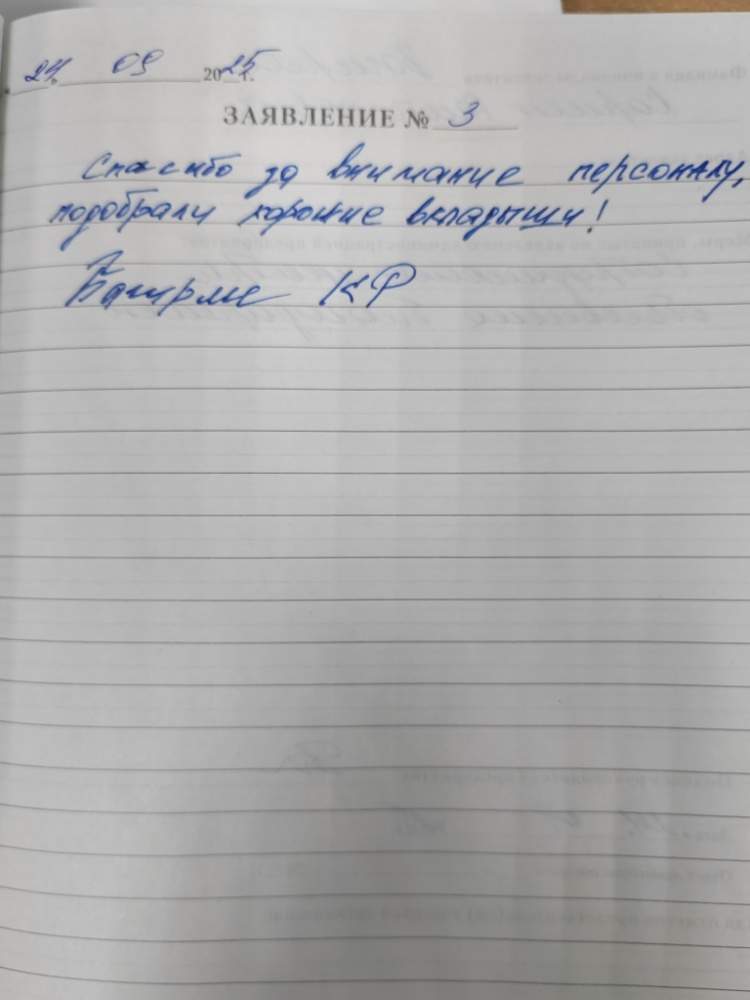 24. 09 2025 г.
ЗАЯВЛЕНИЕ № 3
Спасибо за внимание персоналу,
подобрали хорошие вкладыши!
КФ